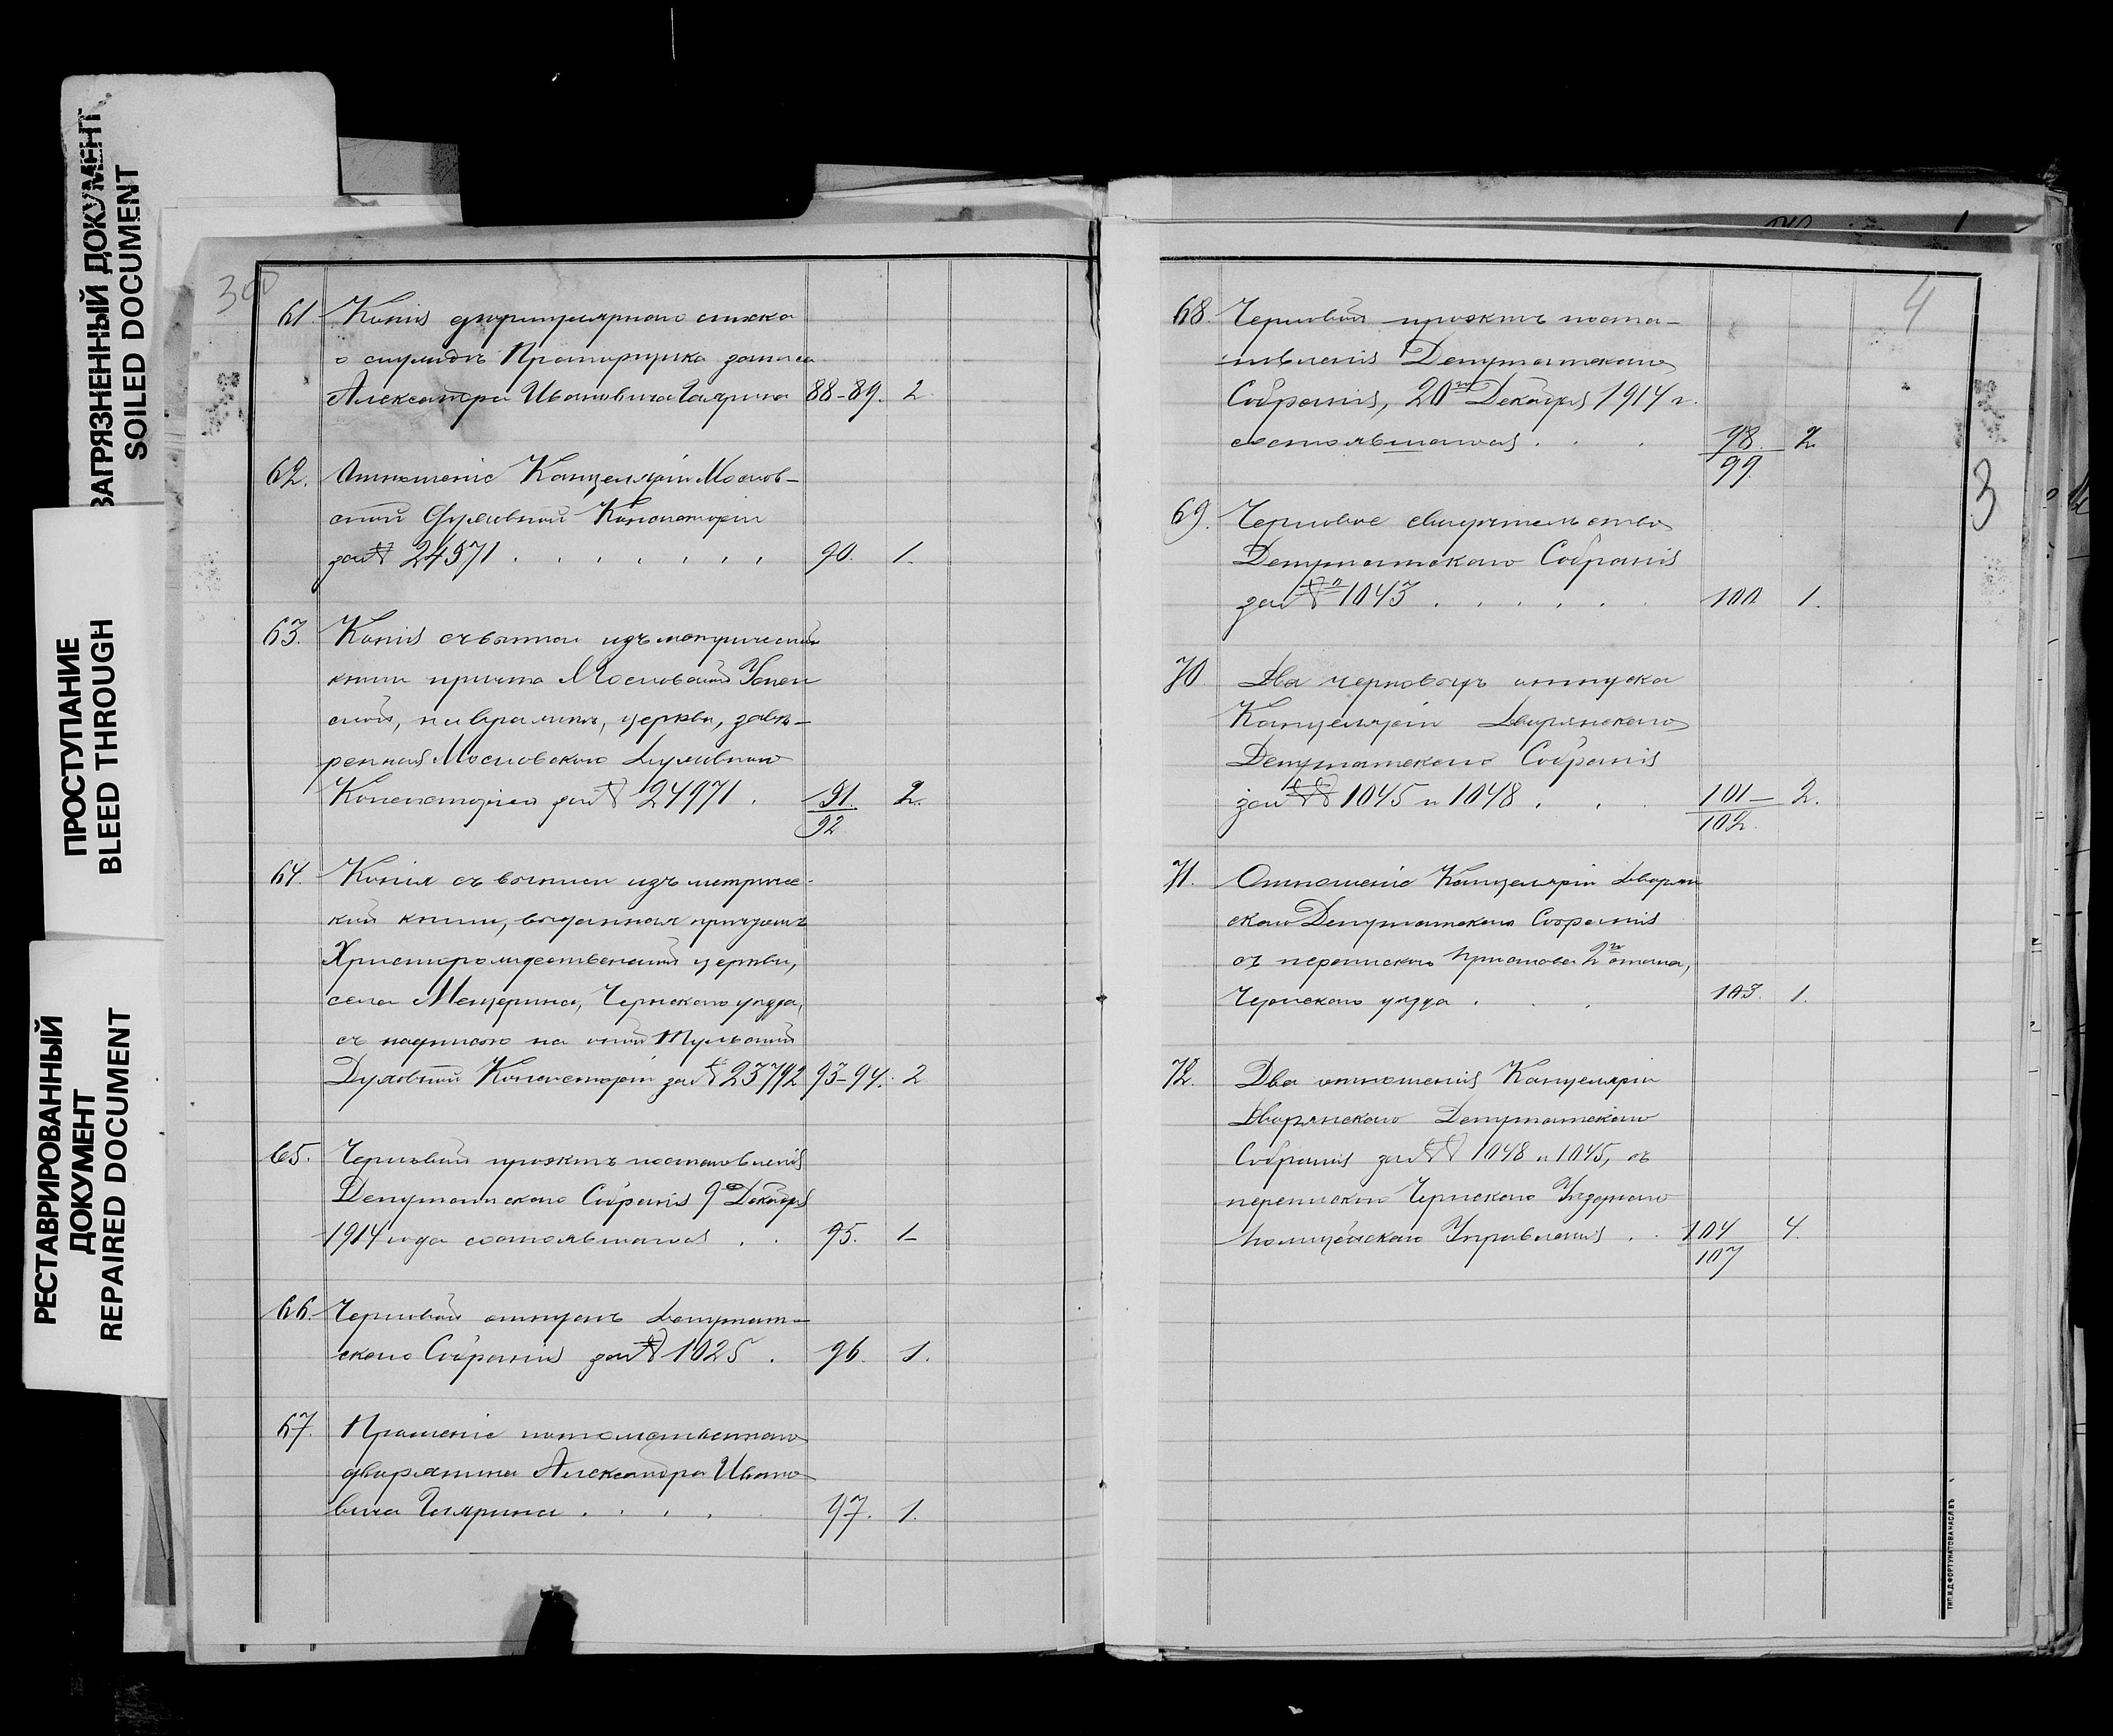 ЗАГРЯЗНЕННЫЙ ДОКУМЕНТ
SOILED DOCUMENT
ПРОСТУПАНИЕ
BLEED THROUGH
РЕСТАВРИРОВАННЫЙ
ДОКУМЕНТ
REPAIRED DOCUMENT
61. Копія формулярнаго списка
о службѣ Прапорщика запаса
Александра Ивановича 88-89. 2
62. Отношеніе Канцеляріи Москов-
ской Духовной Консисторіи
за № 24971 . . . . . . . 90. 1.
63. Копія съ выписи изъ метрической
книги причта Московской Успен
ской, на Вражкѣ, церкви, завѣ-
ренная Московскою Духовною
Консисторіею за № 24971 . 91. 2.
92
64. Копія съ выписи изъ метричес-
кой книги, выданная причтомъ
Христорождественской церкви,
села Мещерина, Чернскаго уѣзда,
съ надписью на оной Тульской
Духовной Консисторіи за № 23792 93-94. 2
65. Черновой проэктъ постановленія
Депутатскаго Собранія 9го Декабря
1914 года состоявшагося . . 95. 1
66. Черновой отпускъ Депутат-
скаго Собранія за № 1025 . 96. 1.
67. Прошеніе потомственнаго
дворянина Александра Ивано
вича . . . . 97. 1.
4
68. Черновой проэктъ поста-
новленія Депутатскаго
Собранія, 20го Декабря 1914 г.
состоявшагося . . . 98. 2
99.
3
69. Черновое свидѣтельство
Депутатскаго Собранія
за № 1043 . . . . . . 100 1.
70 Два черновыхъ отпуска
Канцеляріи Дворянскаго
Депутатскаго Собранія
за №№ 1045 и 1048 . . . 101- 2.
102.
71. Отношеніе Канцеляріи Дворян
скаго Депутатскаго Собранія
съ перепискою Пристава 2го стана,
Чернскаго уѣзда . . . 103. 1.
72. Два отношенія Канцеляріи
Дворянскаго Депутатскаго
Собранія за №№ 1048 и 1045, съ
перепискою Чернскаго Уѣзднаго
Полицейскаго Управленія . . 104 4.
107
ТИП. И.Д. ФОРТУНАТОВА НАСЛ-ВЪ